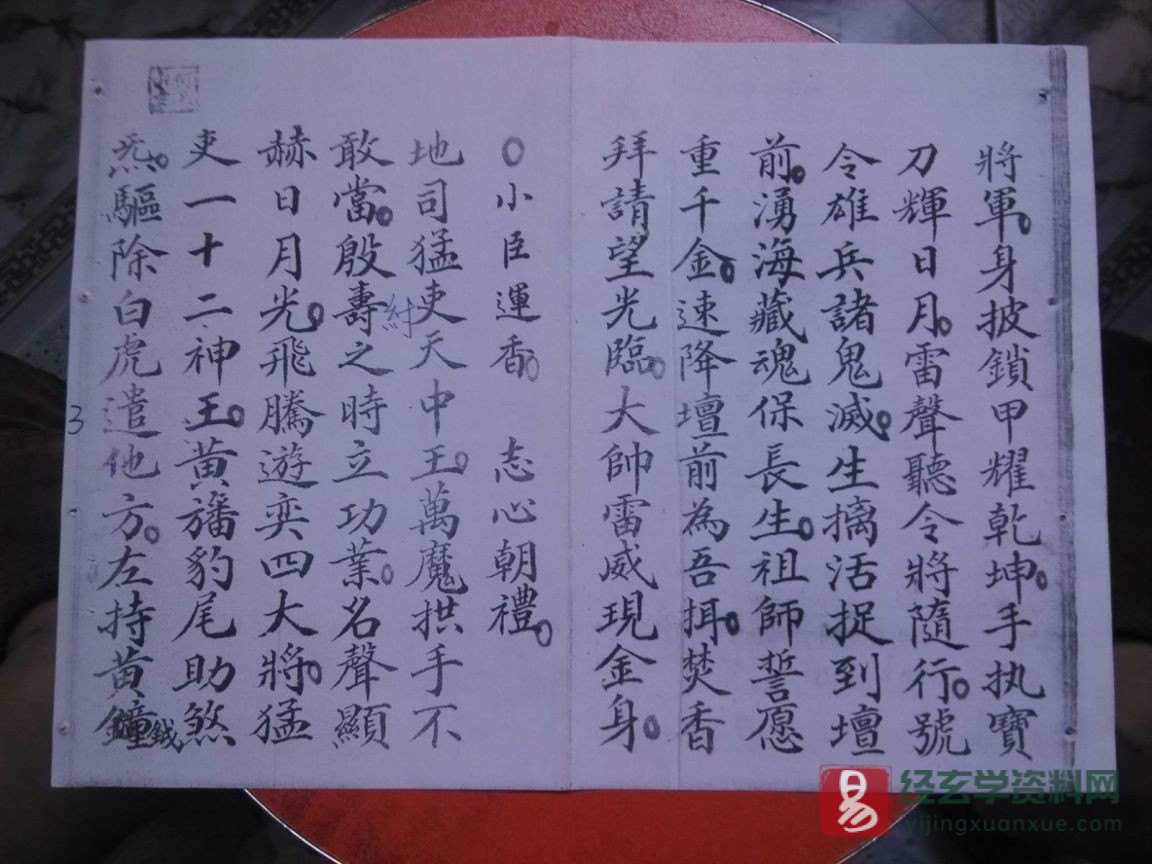 將軍。身披鎖甲耀乾坤。手执寶
刀輝日月。雷聲聽令將隨行。號
令雄兵諸鬼滅。生擒活捉到壇
前。湧海藏魂保長生。祖師誓愿
重千金。速降壇前為吾揖。焚香
拜請望光臨。大帥雷威現金身。
○小臣運香。 志心朝禮。
地司猛吏天中王。萬魔拱手不
敢當。殷壽之時立功業。名聲顯
紂
赫日月光。飛騰遊奕四大將。猛
吏一十二神王。黃旛豹尾助煞
炁。驅除白虎遣他方。左持黃
鐘鉞
3
易
经玄学资料网
yijingxuanxue.com